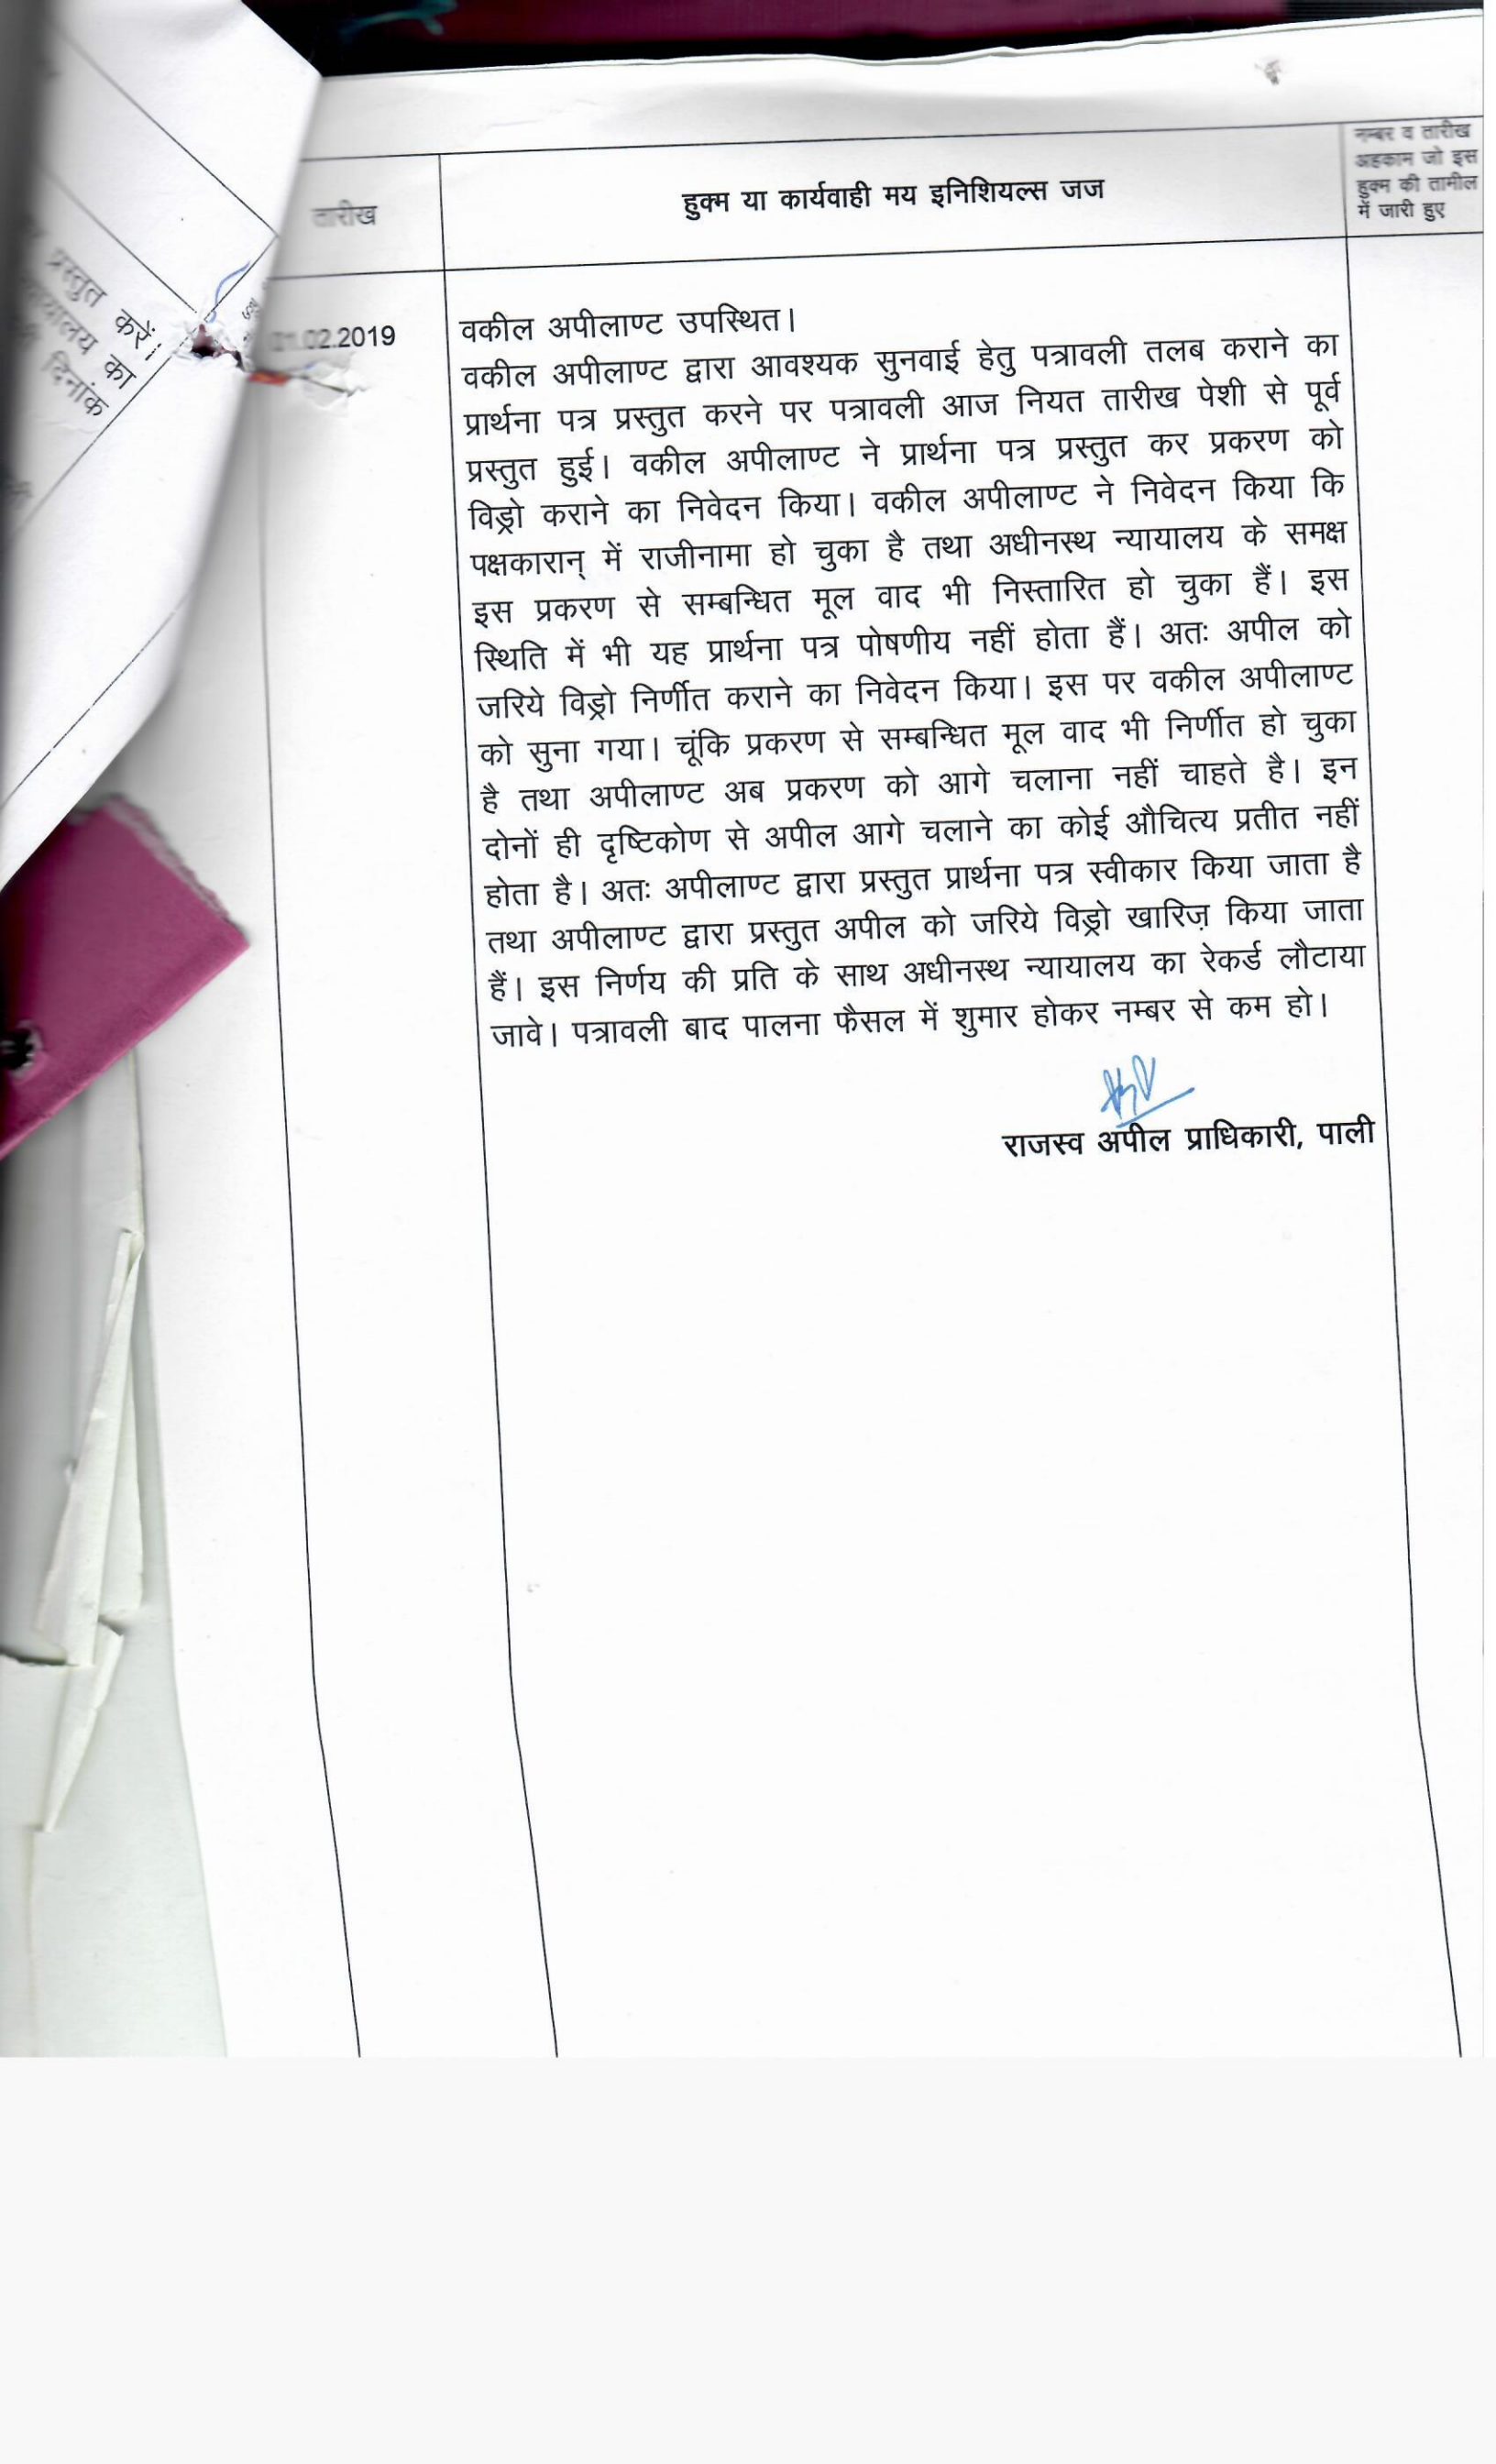 प्रस्तुत करें।
का
दिनांक
तारीख
हुक्म या कार्यवाही मय इनिशियल्स जज
नम्बर व तारीख
अहकाम जो इस
हुक्म की तामील
में जारी हुए
.02.2019
वकील अपीलाण्ट उपस्थित।
वकील अपीलाण्ट द्वारा आवश्यक सुनवाई हेतु पत्रावली तलब कराने का
प्रार्थना पत्र प्रस्तुत करने पर पत्रावली आज नियत तारीख पेशी से पूर्व
प्रस्तुत हुई। वकील अपीलाण्ट ने प्रार्थना पत्र प्रस्तुत कर प्रकरण को
विड्रो कराने का निवेदन किया। वकील अपीलाण्ट ने निवेदन किया कि
पक्षकारान् में राजीनामा हो चुका है तथा अधीनस्थ न्यायालय के समक्ष
इस प्रकरण से सम्बन्धित मूल वाद भी निस्तारित हो चुका हैं। इस
स्थिति में भी यह प्रार्थना पत्र पोषणीय नहीं होता हैं। अतः अपील को
जरिये विड्रो निर्णीत कराने का निवेदन किया। इस पर वकील अपीलाण्ट
को सुना गया। चूंकि प्रकरण से सम्बन्धित मूल वाद भी निर्णीत हो चुका
है तथा अपीलाण्ट अब प्रकरण को आगे चलाना नहीं चाहते है। इन
दोनों ही दृष्टिकोण से अपील आगे चलाने का कोई औचित्य प्रतीत नहीं
होता है। अतः अपीलाण्ट द्वारा प्रस्तुत प्रार्थना पत्र स्वीकार किया जाता है
तथा अपीलाण्ट द्वारा प्रस्तुत अपील को जरिये विड्रो खारिज़ किया जाता
हैं। इस निर्णय की प्रति के साथ अधीनस्थ न्यायालय का रेकर्ड लौटाया
जावे। पत्रावली बाद पालना फैसल में शुमार होकर नम्बर से कम हो।
राजस्व अपील प्राधिकारी, पाली